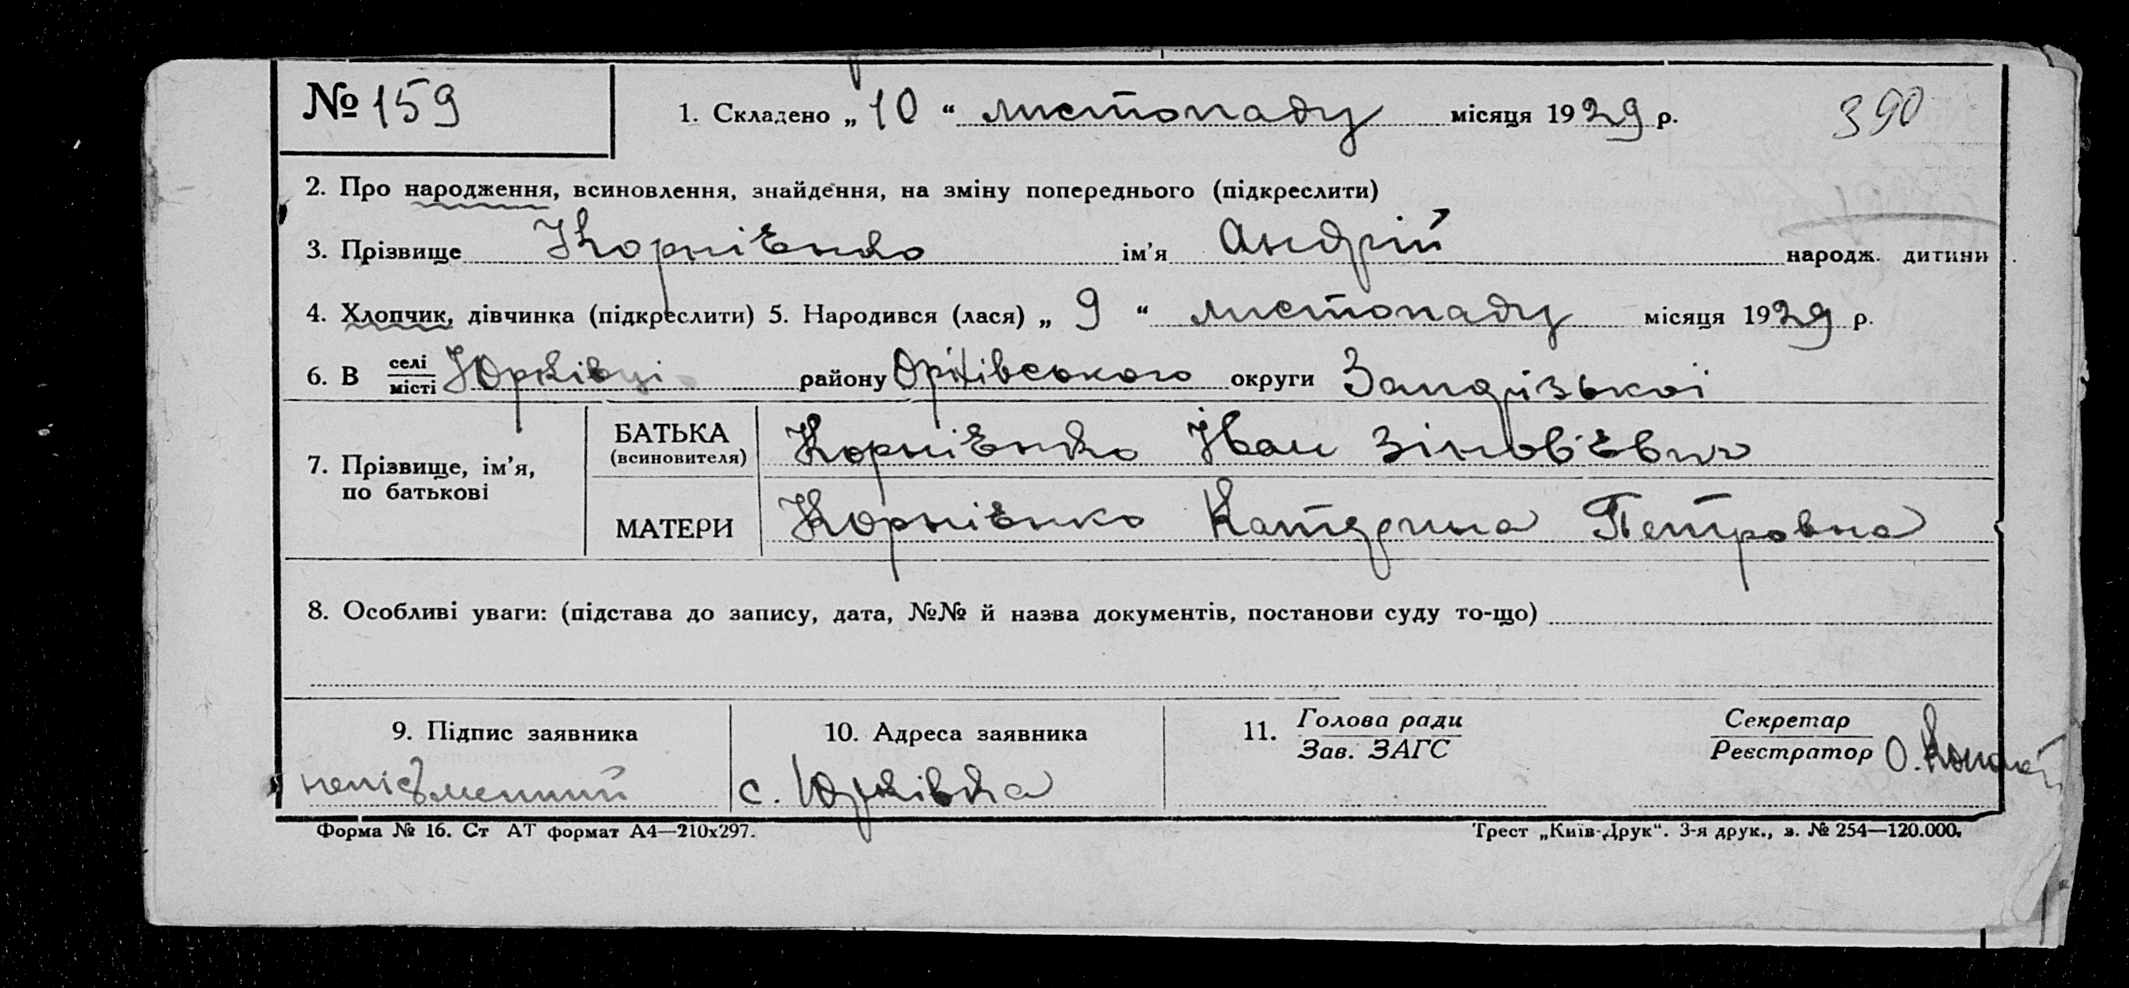 № 159 1. Складено „10“ листопаду місяця 1929 р. 390
2. Про народження, всиновлення, знайдення, на зміну попереднього (підкреслити)
3. Прізвище Корнієнко ім’я Андрій народж. дитини
4. Хлопчик, дівчинка (підкреслити) 5. Народився (лася) „9“ листопаду місяця 1929 р.
6. В селі/місті Юрківці району Оріхівського округи Запорізької
7. Прізвище, ім’я, по батькові
БАТЬКА (всиновителя) Корнієнко Іван Зіновʼєвич
МАТЕРИ Корнієнко Катерина Петровна
8. Особливі уваги: (підстава до запису, дата, №№ й назва документів, постанови суду то-що)
9. Підпис заявника 10. Адреса заявника 11. Голова ради / Зав. ЗАГС Секретар / Реєстратор О.
неписьменний с. Юрківка
Форма № 16. Ст АТ формат А4—210х297. Трест „Київ-Друк“. 3-я друк., з. № 254—120.000.